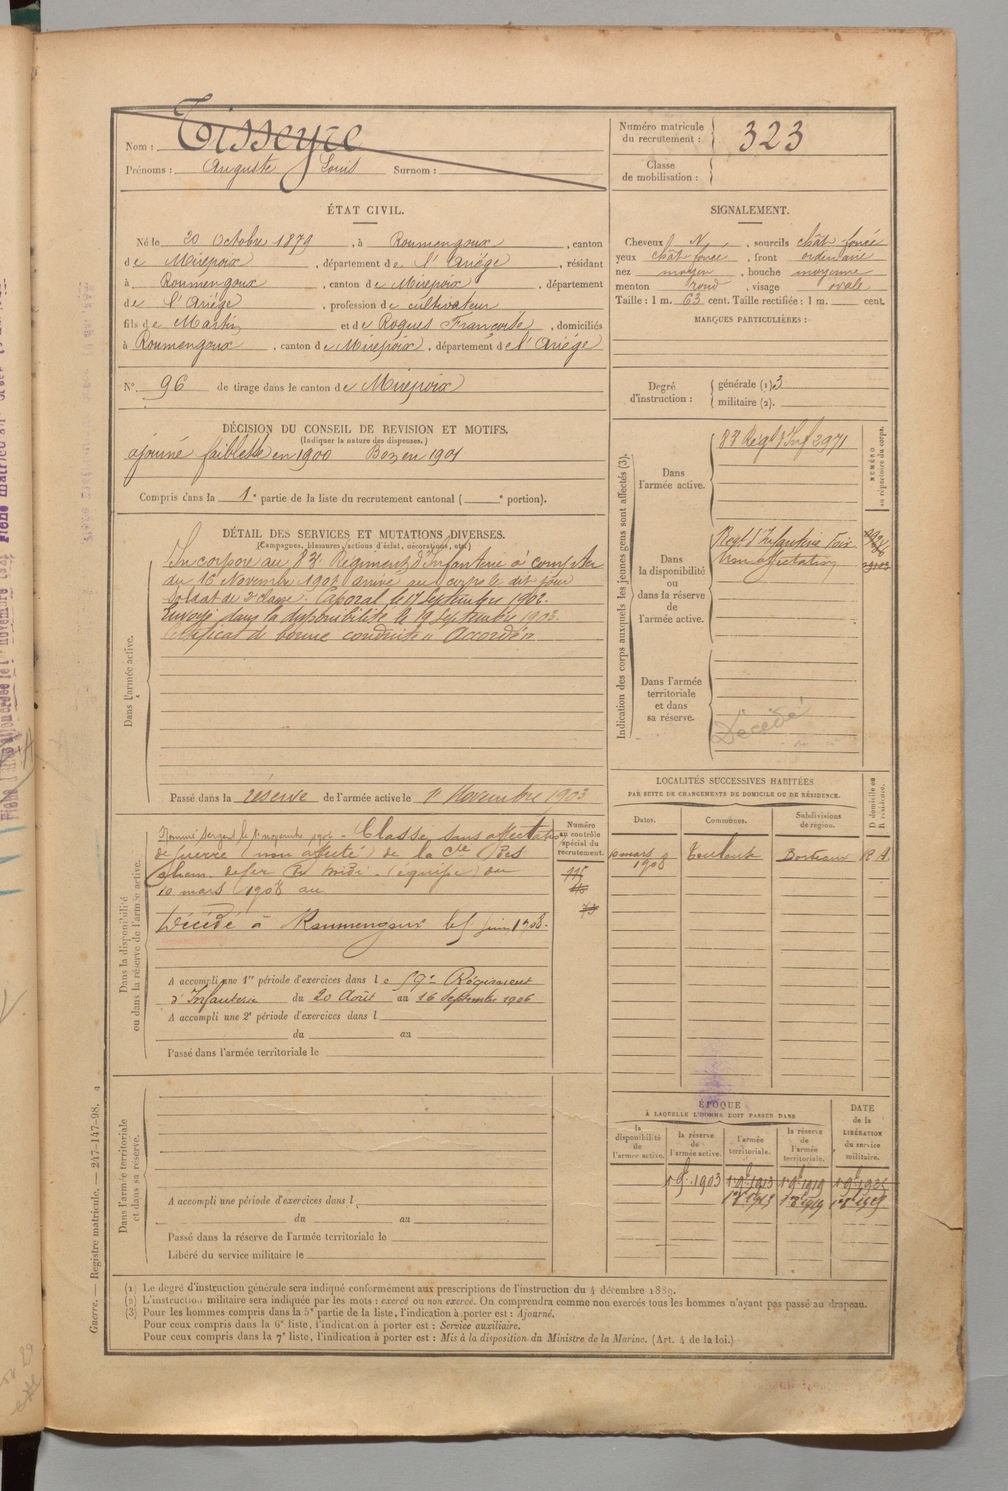 Nom : Tisseyre
Prénoms : Auguste Louis Surnom :
Numéro matricule du recrutement : 323
Classe de mobilisation :
ÉTAT CIVIL.
Né le 20 Octobre 1879, à Roumengoux, canton
de Mirepoix, département de l'Ariége, résidant
à Roumengoux, canton de Mirepoix, département
de l'Ariége, profession de cultivateur
fils de Martin et de Roques Françoise, domiciliés
à Roumengoux, canton de Mirepoix, département de l'Ariége
N° 96 de tirage dans le canton de Mirepoix
SIGNALEMENT.
Cheveux N, sourcils chât foncé
yeux chât foncé, front ordinaire
nez moyen, bouche moyenne
menton rond, visage ovale
Taille : 1 m. 63 cent. Taille rectifiée : 1 m. cent.
MARQUES PARTICULIÈRES :
Degré d'instruction : générale (1) 3
militaire (2).
DÉCISION DU CONSEIL DE REVISION ET MOTIFS.
(Indiquer la nature des dispenses.)
ajourné faiblesse en 1900 Bon en 1901
Compris dans la 1e partie de la liste du recrutement cantonal ( e portion).
DÉTAIL DES SERVICES ET MUTATIONS DIVERSES.
(Campagnes, blessures, actions d'éclat, décorations, etc.)
Dans l'armée active.
Incorporé au 83e Régiment d'Infanterie à compter
du 16 Novembre 1901 arrivé au corps le dit jour
soldat de 2e classe. Caporal le 17 Septembre 1902.
Envoyé dans la disponibilité le 19 Septembre 1903.
Certificat de bonne conduite "Accordé"
Passé dans la réserve de l'armée active le 1er Novembre 1903
Indication des corps auxquels les jeunes gens sont affectés (3).
NUMÉRO au répertoire du corps.
Dans l'armée active.
83e Régt d'Inf 2971
Dans la disponibilité ou dans la réserve de l'armée active.
Régt d'Infanterie Foix
non affectation
Dans l'armée territoriale et dans sa réserve.
Décédé
LOCALITÉS SUCCESSIVES HABITÉES
PAR SUITE DE CHANGEMENTS DE DOMICILE OU DE RÉSIDENCE.
Dates. Communes. Subdivisions de région. D domicile ou R résidence.
10 mars 1908 Toulouse Bordeaux R. A.
Dans la disponibilité ou dans la réserve de l'armée active.
Numéro au contrôle spécial du recrutement.
Nommé Sergent le 1er novembre 1905 - Classé sans affectation
de guerre (non affecté) de la Cie des
chem. de fer du midi. (équipe) du
10 mars 1908 au
Décédé à Roumengoux le 5 juin 1908.
A accompli une 1re période d'exercices dans le 59e Régiment
d'Infanterie du 20 Août au 16 Septembre 1906
A accompli une 2e période d'exercices dans l
du au
Passé dans l'armée territoriale le
Dans l'armée territoriale et dans sa réserve.
A accompli une période d'exercices dans l
du au
Passé dans la réserve de l'armée territoriale le
Libéré du service militaire le
ÉPOQUE
À LAQUELLE L'HOMME DOIT PASSER DANS
la disponibilité de l'armée active.
la réserve de l'armée active.
l'armée territoriale.
la réserve de l'armée territoriale.
DATE de la LIBÉRATION du service militaire.
1 9bre 1903 1 9bre 1913 1 9bre 1919
(1) Le degré d'instruction générale sera indiqué conformément aux prescriptions de l'instruction du 4 décembre 1889.
(2) L'instruction militaire sera indiquée par les mots : exercé ou non exercé. On comprendra comme non exercés tous les hommes n'ayant pas passé au drapeau.
(3) Pour les hommes compris dans la 5e partie de la liste, l'indication à porter est : Ajourné.
Pour ceux compris dans la 6e liste, l'indication à porter est : Service auxiliaire.
Pour ceux compris dans la 7e liste, l'indication à porter est : Mis à la disposition du Ministre de la Marine. (Art. 4 de la loi.)
Guerre. — Registre matricule. — 247-147-98.